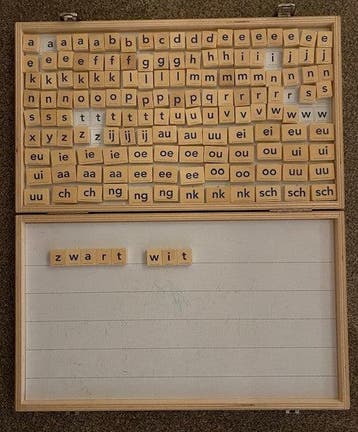 a a a a a b b c d d d e e e e e e e
e e e e f f f g g g h h h i i j j j
k k k k k l l l l m m m m n n n n
n n n o o o p p p p q r r r r r s s
s s s t t t t t t u u v v v w w w
x y z z z ij ij ij au au uu ei ei eu eu
eu ie ie ie oe oe oe ou ou oui ui ui
ui aa aa aa ee ee ee oo oo oo uu uu
uu ch ch ng ng ng nk nk nk sch sch sch
zwart wit